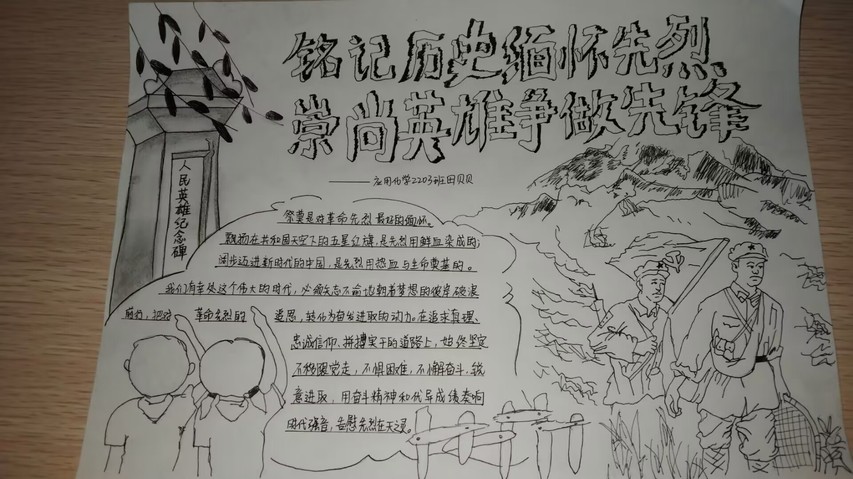 铭记历史缅怀先烈
崇尚英雄争做先锋
——应用化学2203班田贝贝
人民英雄纪念碑
祭奠是对革命先烈最好的缅怀。
飘扬在共和国天空下的五星红旗,是先烈用鲜血染成的;
阔步迈进新时代的中国,是先烈用热血与生命奠基的。
我们有幸处这个伟大的时代,必须矢志不渝地朝着梦想的彼岸破浪
前行,把对革命先烈的追思,转化为奋发进取的动力。在追求真理、
忠诚信仰、拼搏实干的道路上,始终坚定
不移跟党走,不惧困难,不懈奋斗,锐
意进取,用奋斗精神和优异成绩奏响
时代强音,告慰先烈在天之灵。